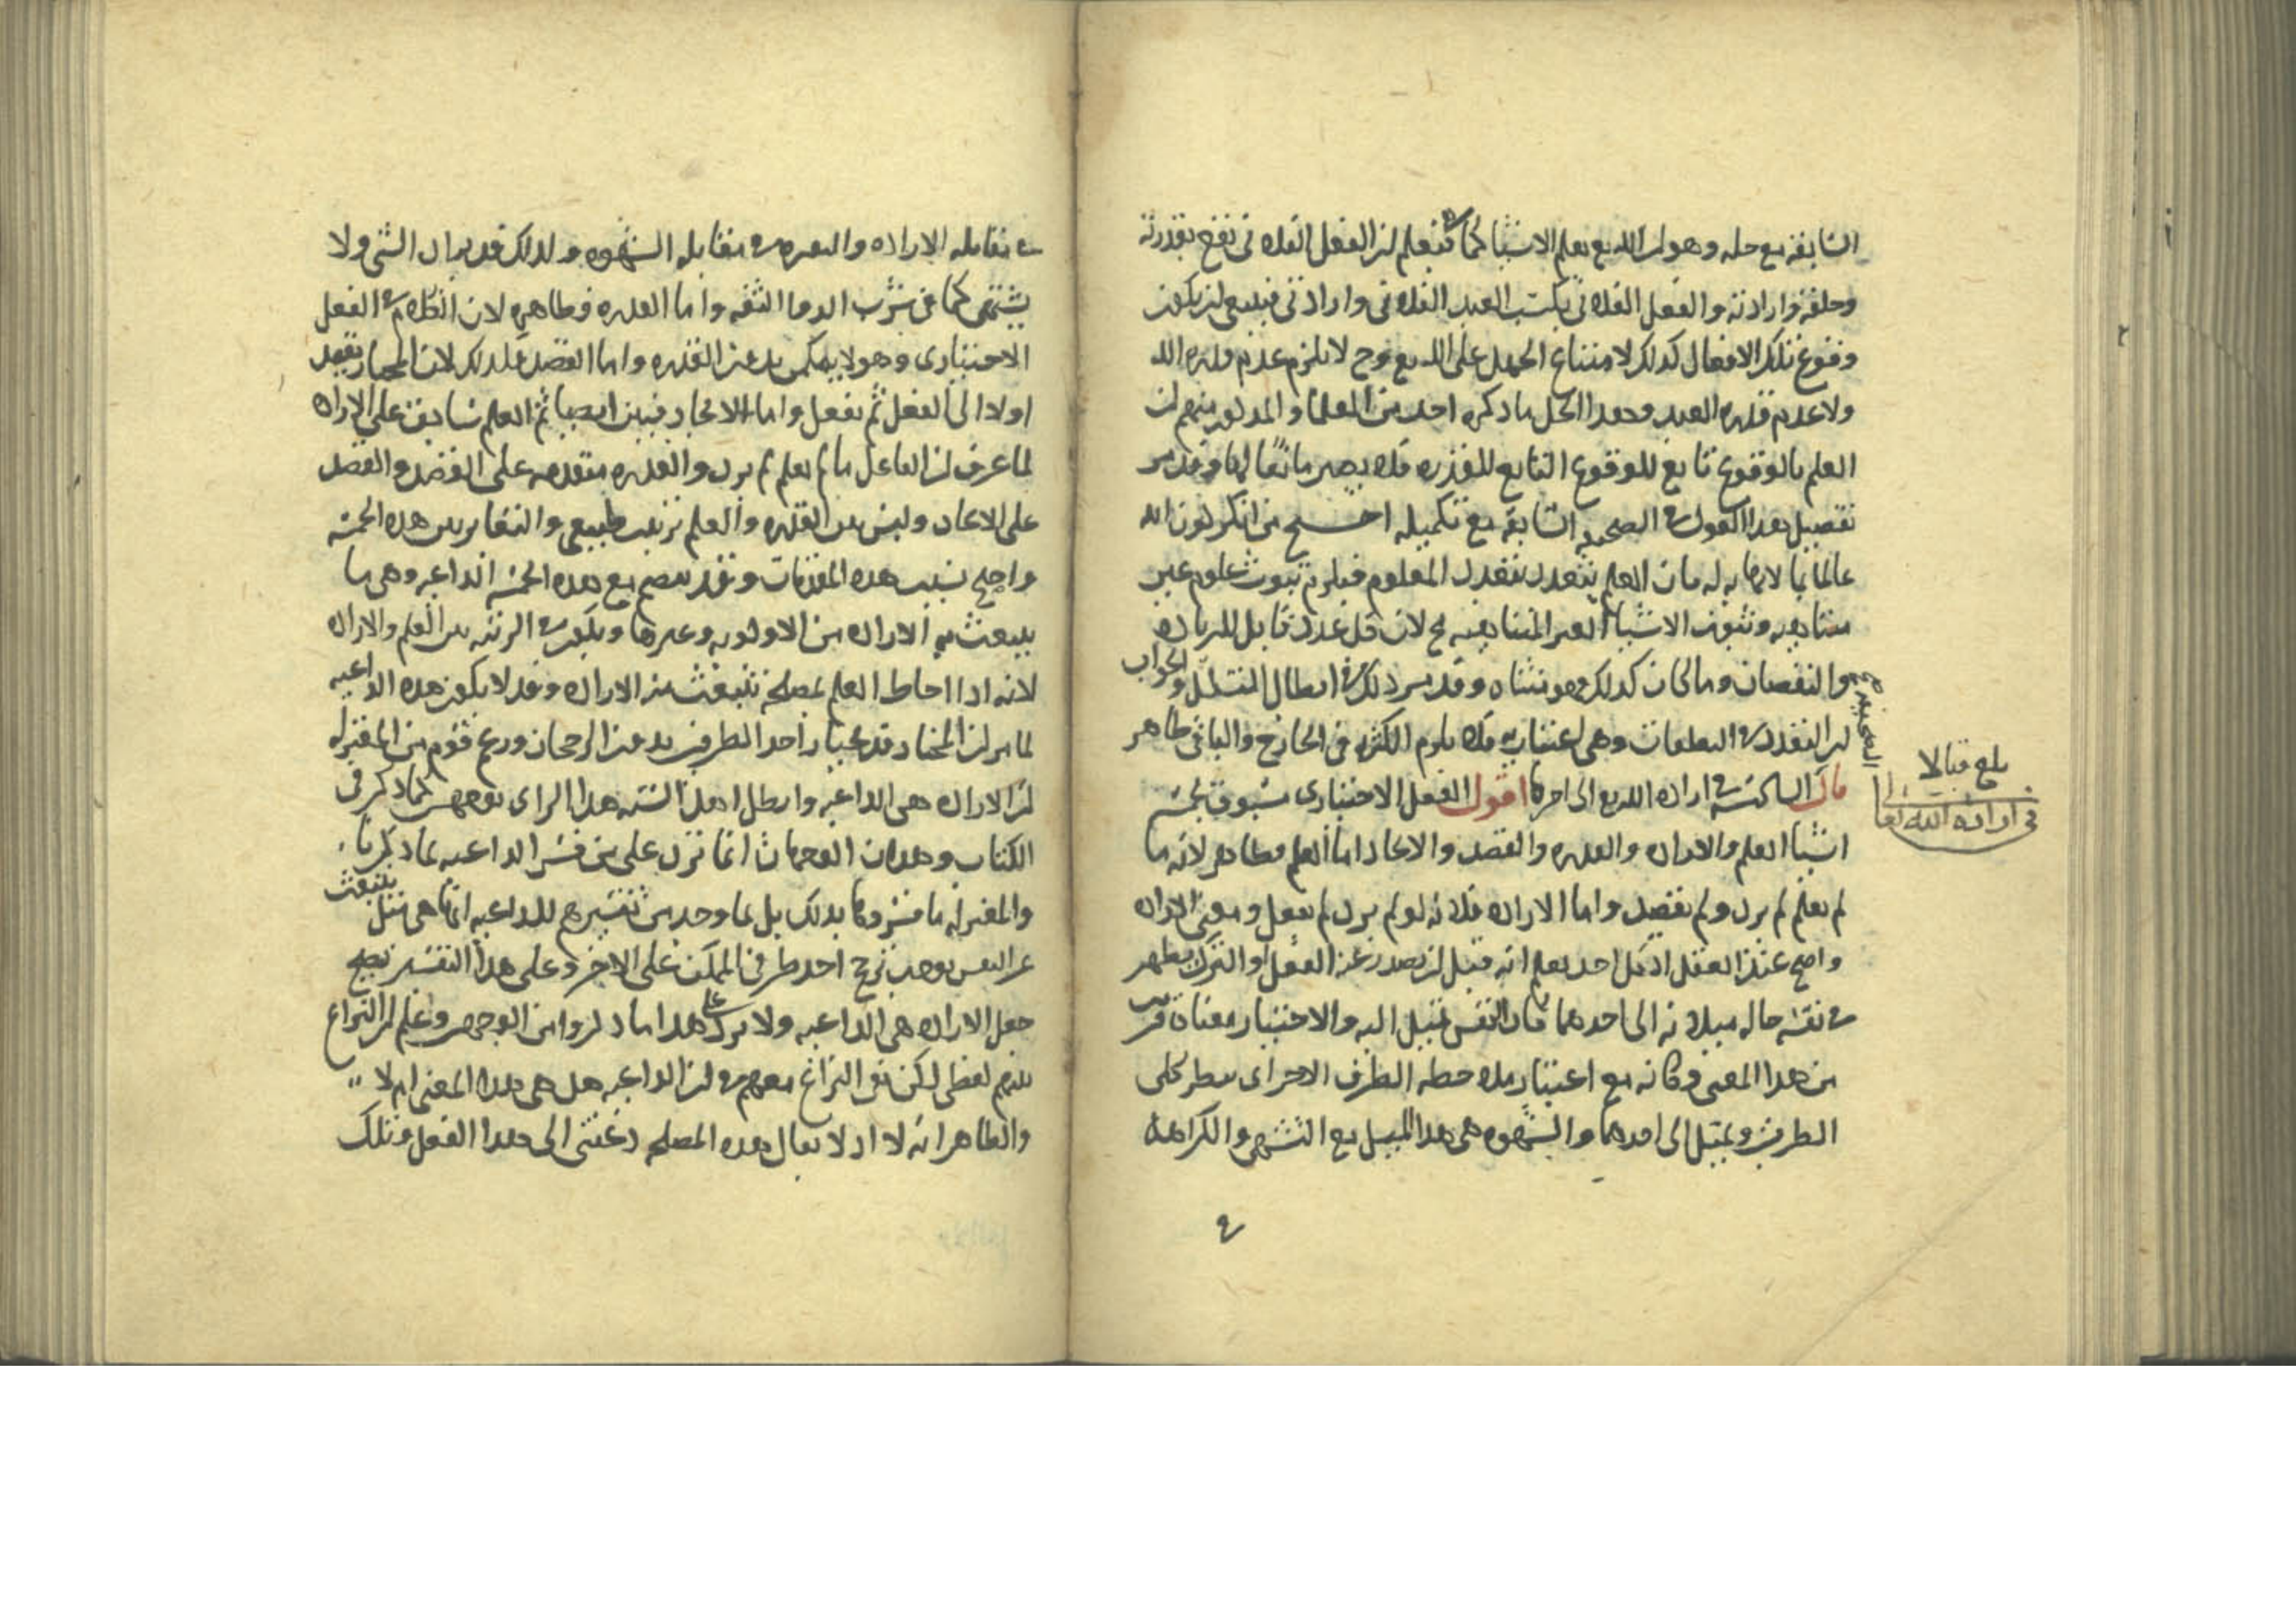 السابقة مع حله وهو ان الله تع يعلم الاشيا كما هي فيعلم ان الفعل الفلاني يقع بقدرته
وخلقه وارادته والفعل الفلاني بكسب العبد الفلاني وارادته فينبغي ان يكون
وقوع تلك الافعال كذلك لامتناع الجهل على الله تع وح لا يلزم عدم قدرة الله
ولا عدم قدرة العبد وهذا الحل ما ذكره احد من العلما والمذكور منهم ان
العلم بالوقوع تابع للوقوع التابع للقدرة فلا يصير مانعا لها وقد مر
تفصيل هذا القول في الصحيفة السابقة مع تكميله احتج من انكر كون الله
عالما بما لا نهاية له بان العلم يتعدد بتعدد المعلوم فيلزم ثبوت علوم غير
متناهية وثبوت الاشيا الغير المتناهية مح لان كل عدد قابل للزيادة
والنقصان وما كان كذلك فهو متناه وقد مر ذلك في ابطال التسلسل والجواب
ان التعدد في التعلقات وهي اعتبارية فلا يلزم الكثرة في الخارج والباقي ظاهر
قال السادسة في ارادة الله تع الى اخرها اقول الفعل الاختياري مسبوق بخمسة
اشيا العلم والارادة والقدرة والقصد والايجاد اما العلم فظاهر لانه ما
لم يعلم لم يرد ولم يقصد واما الارادة فلانه لو لم يرد لم يفعل ومعنى الارادة
واضح عند العقل اذ كل احد يعلم انه قبل ان يصدر عنه الفعل او الترك يظهر
في نفسه حالة ميلانه الى احدهما فان النفس تميل اليه والاختيار معناه قريب
من هذا المعنى وكانه مع اعتبار ملاحظة الطرف الاخر اي ينظر الى
الطرفين ويميل الى احدهما والشهوة هي هذا الميل مع التشهي والكراهة
بلغ قبالا
في ارادة الله تعالى
في مقابلة الارادة والنفرة في مقابلة الشهوة ولذلك قد يراد الشي ولا
يشتهى كما في شرب الدوا الثقه واما القدرة فظاهرة لان الكلام في الفعل
الاختياري وهو لا يمكن بدون القدرة واما القصد فلذلك لان المختار يقصد
اولا الى الفعل ثم يفعل واما الايجاد فبين ايضا ثم العلم سابق على الارادة
لما عرف ان الفاعل ما لم يعلم لم يرد والقدرة متقدمة على القصد والقصد
على الايجاد وليس بين القدرة والعلم ترتيب طبيعي والتغاير بين هذه الخمسة
واضح بسبب هذه المقدمات وقد ينضم مع هذه الخمسة الداعية وهي ما
ينبعث به الارادة من الاولوية وغيرها ويكون في الرتبة بين العلم والارادة
لانه اذا احاط العلم بمصلحة تنبعث منه الارادة وقد لا يكون هذه الداعية
لما مر ان المختار قد يختار احد الطرفين بدون الرجحان وزعم قوم من المعتزلة
ان الارادة هي الداعية وابطل اهل السنة هذا الراي بوجهين كما ذكر في
الكتاب وهذان الوجهان انما تزد على من فسر الداعية بما ذكرنا
والمعتزلة ما فسروها بذلك بل بما وجد من تفسيرهم للداعية انها هي ميل ينبعث
عن النفس يوجب ترجح احد طرفي الممكن على الاخر وعلى هذا التفسير يصح
جعل الارادة هي الداعية ولا يرد على هذا ما ذكروا من الوجهين وعلم ان النزاع
بينهم لفظي لكن بقي النزاع معهم في ان الداعية هل هي بهذا المعنى ام لا
والظاهر انه لا اذ لا يقال هذه المصلحة دعتني الى هذا الفعل وتلك